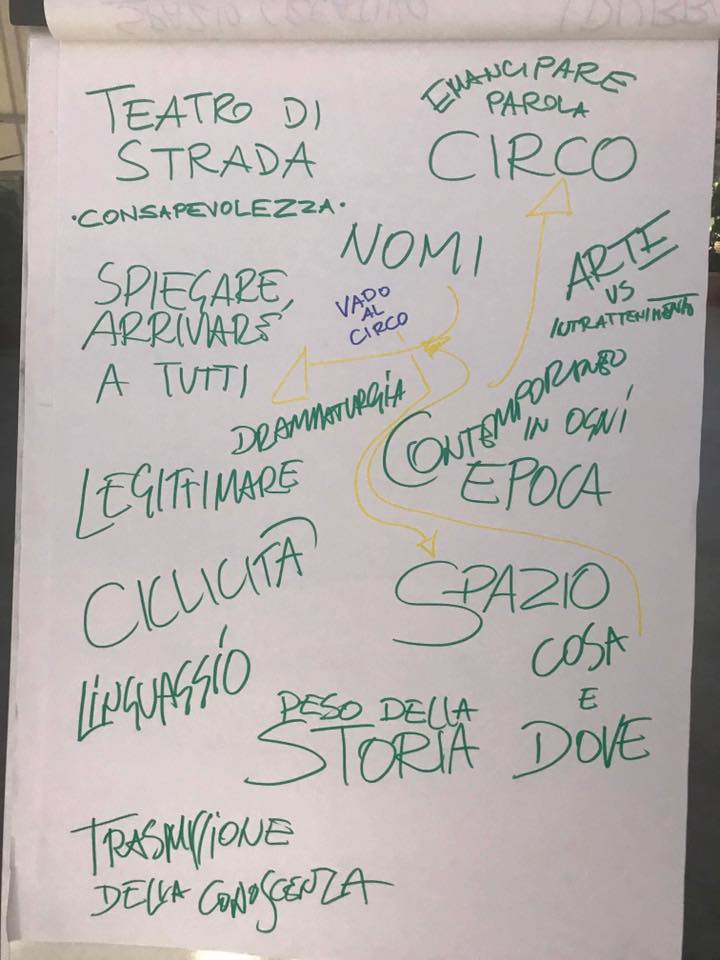 TEATRO DI
STRADA
·CONSAPEVOLEZZA·
EMANCIPARE
PAROLA
CIRCO
NOMI
SPIEGARE,
ARRIVARE
A TUTTI
VADO
AL
CIRCO
ARTE
VS
INTRATTENIMENTO
DRAMMATURGIA
CONTEMPORANEO
IN OGNI
EPOCA
LEGITTIMARE
CICLICITÀ
SPAZIO
COSA
E
DOVE
LINGUAGGIO
PESO DELLA
STORIA
TRASMISSIONE
DELLA CONOSCENZA